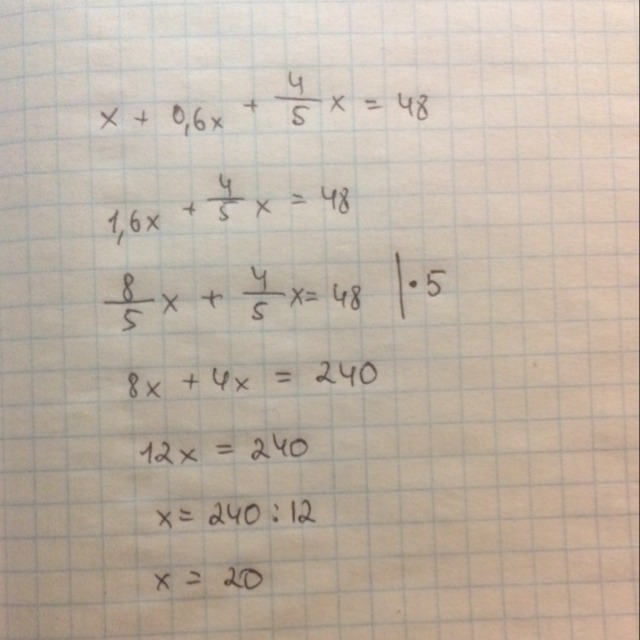 x + 0,6x + 4/5 x = 48
1,6x + 4/5 x = 48
8/5 x + 4/5 x = 48 | · 5
8x + 4x = 240
12x = 240
x = 240 : 12
x = 20